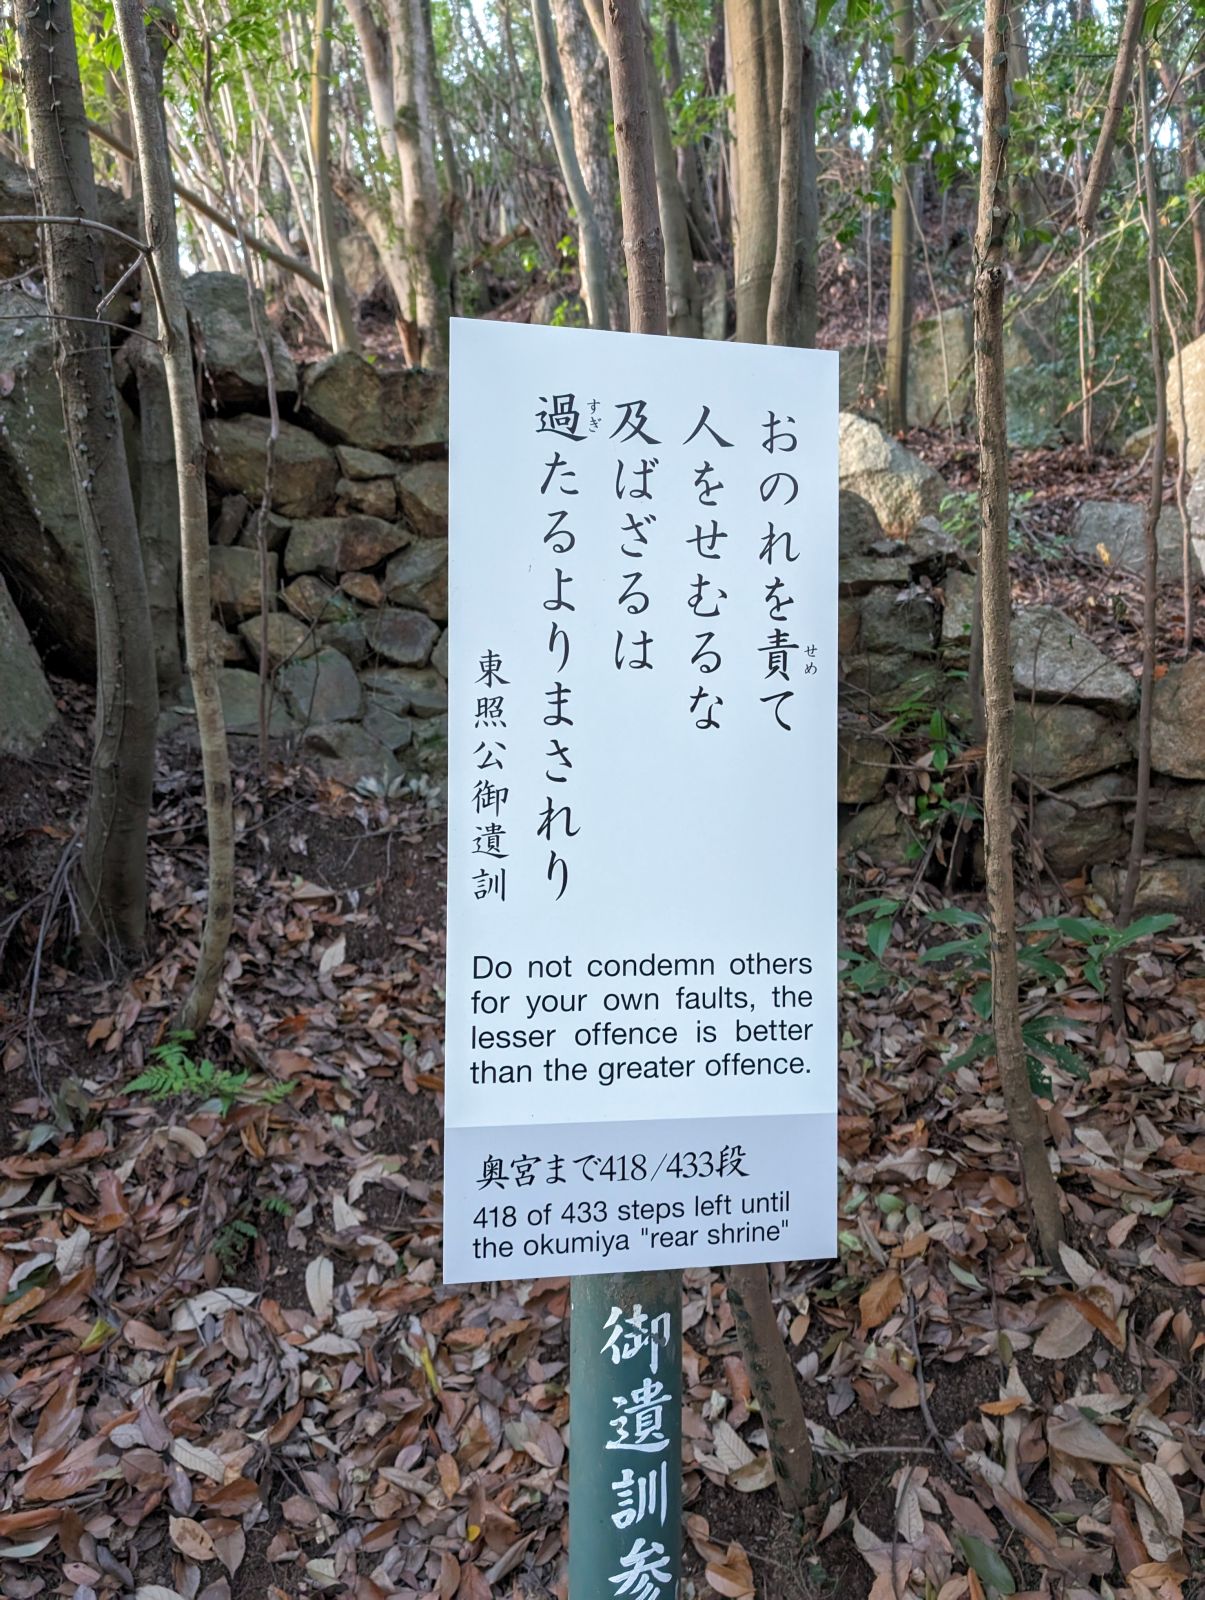 おのれを責て
せめ
人をせむるな
及ばざるは
過たるよりまされり
すぎ
東照公御遺訓
Do not condemn others
for your own faults, the
lesser offence is better
than the greater offence.
奥宮まで418/433段
418 of 433 steps left until
the okumiya "rear shrine"
御遺訓参